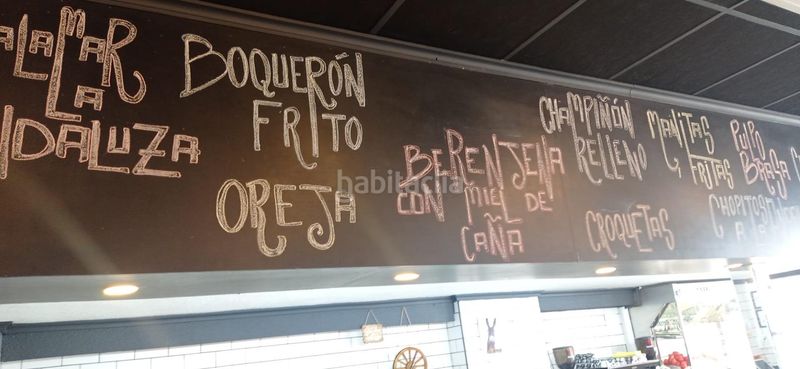 CALAMAR
A LA
ANDALUZA
BOQUERÓN
FRITO
OREJA
BERENJENA
CON MIEL DE
CAÑA
CHAMPIÑÓN
RELLENO
CROQUETAS
MANITAS
FRITAS
PULPO
BRASA
CHOPITOS
habitaclia